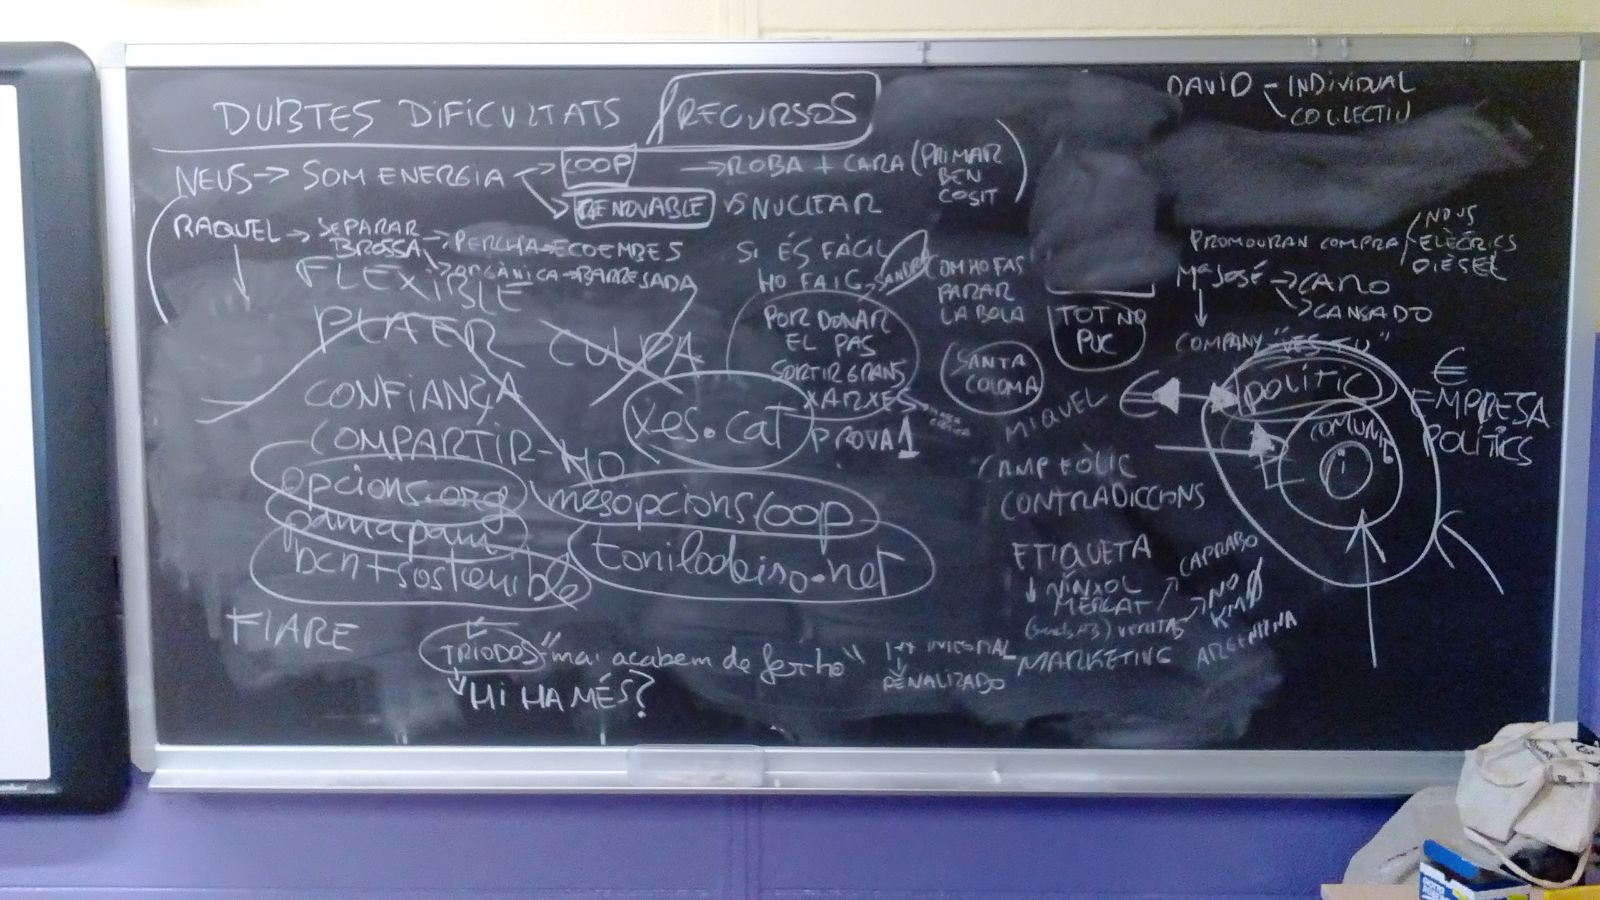 DUBTES DIFICULTATS RECURSOS
DAVID - INDIVIDUAL
COL·LECTIU
NEUS → SOM ENERGIA → COOP
→ RENOVABLE VS NUCLEAR
→ ROBA + CARA (PRIMAR
BEN
COSIT)
RAQUEL → SEPARAR
BROSSA → PERCHA → ECOEMBES
→ ORGÀNICA → BARREJADA
FLEXIBLE
PLAER CULPA
CONFIANÇA
COMPARTIR - NO
SI ÉS FÀCIL
HO FAIG → SANDRA
POR DONAR
EL PAS
SORTIR GRANS
XARXES
PROVA 1
COM HO FAS
PARAR
LA BOLA
SANTA
COLOMA
TOT NO
PUC
PROMOURAN COMPRA
NOUS
ELÈCTRICS
DIÈSEL
Mª JOSÉ → CARO
→ CANSADO
COMPANY "VES TU"
MIQUEL € POLÍTIC
COMUNIT
i
€
EMPRESA
POLÍTICS
xes.cat
opcions.org
mesopcions.coop
pamapam
bcn+sostenible
tonilodeiro.net
FIARE
TRIODOS "mai acabem de fer-ho"
HI HA MÉS?
CAMP EÒLIC
CONTRADICCIONS
ETIQUETA
↓ NÍNXOL
MERCAT
VERITAS
CAPRABO
NO
KM Ø
ARGENTINA
MARKETING
INTEGRAL
PENALIZADO